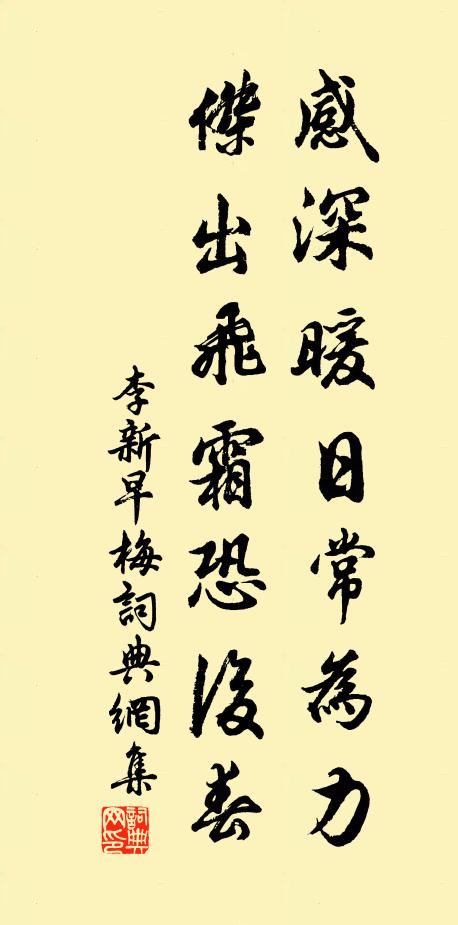 感深暖日常為力
傑出飛霜恐後春
李新早梅詞典網集
詞典网印